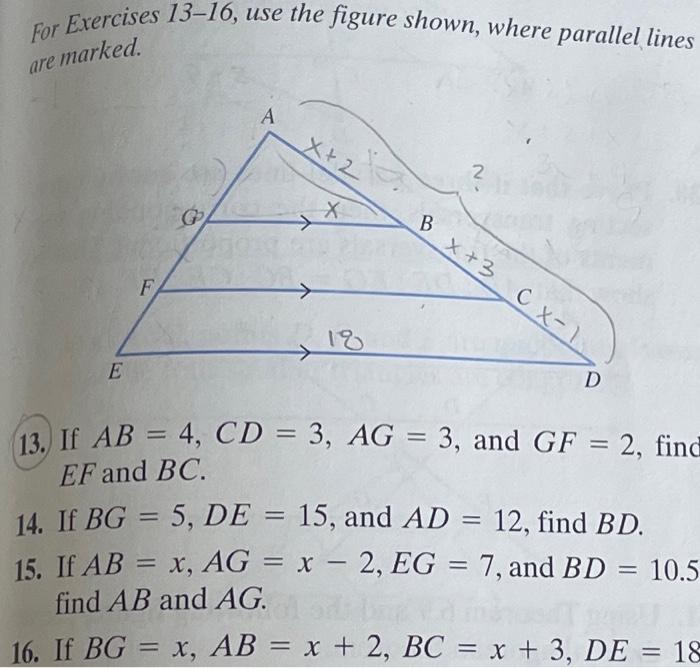 For Exercises 13–16, use the figure shown, where parallel lines
are marked.
A
x+2
?
G
x
B
x+3
F
C
x-1
18
E
D
13. If AB = 4, CD = 3, AG = 3, and GF = 2, find
EF and BC.
14. If BG = 5, DE = 15, and AD = 12, find BD.
15. If AB = x, AG = x − 2, EG = 7, and BD = 10.5
find AB and AG.
16. If BG = x, AB = x + 2, BC = x + 3, DE = 18